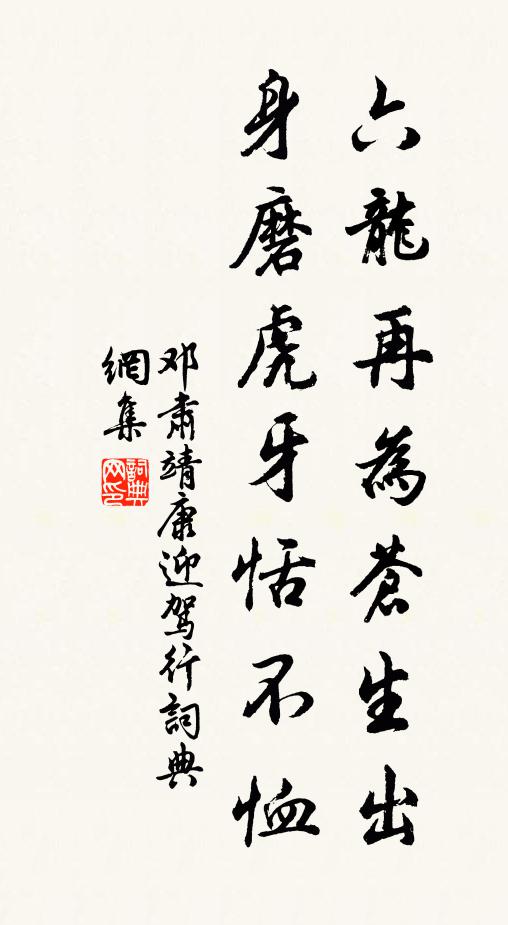 六龍再為蒼生出
身磨虎牙恬不恤
邓肅靖康迎駕行詞典
網集
詞典
网印